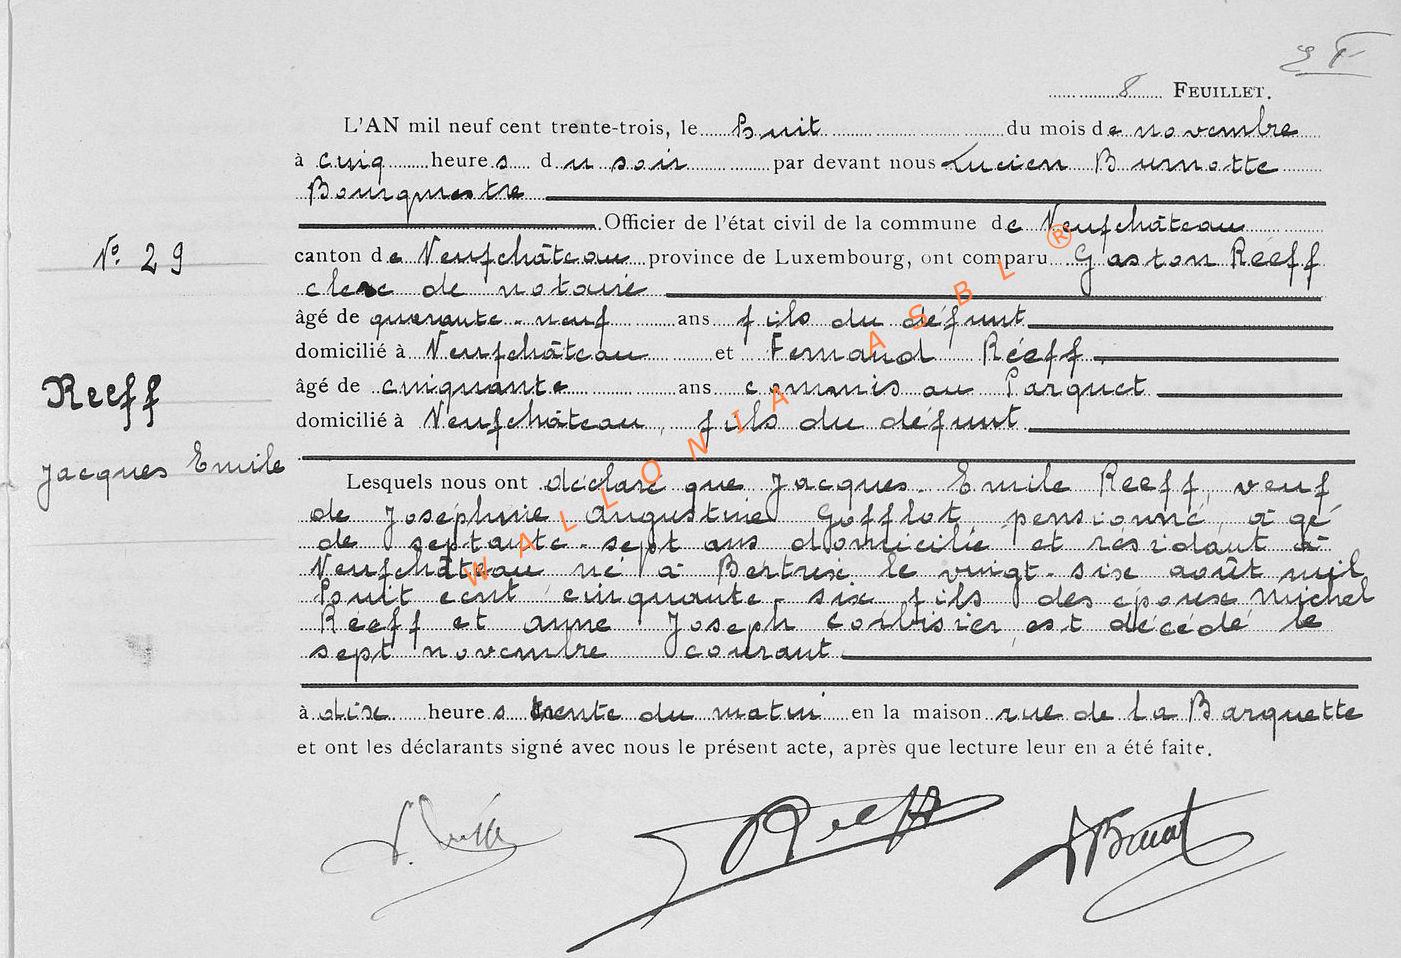 8 FEUILLET.
L'AN mil neuf cent trente-trois, le huit du mois de novembre
à cinq heures du soir par devant nous Lucien Burnotte
Bourgmestre
Officier de l'état civil de la commune de Neufchâteau
N° 29
canton de Neufchâteau province de Luxembourg, ont comparu Gaston Réeff
clerc de notaire
âgé de quarante-neuf ans fils du défunt
domicilié à Neufchâteau et Fernand Réeff
Reeff
âgé de cinquante ans commis au Parquet
domicilié à Neufchâteau, fils du défunt
Jacques Emile
Lesquels nous ont déclaré que Jacques Emile Reeff, veuf
de Joséphine Augustine Gofflot, pensionné, âgé
de septante-sept ans domicilié et résidant à
Neufchâteau né à Bertrix le vingt-six août mil
huit cent cinquante-six fils des époux Michel
Reeff et Anne Joseph Corbisier, est décédé le
sept novembre courant
à dix heures trente du matin en la maison rue de la Barquette
et ont les déclarants signé avec nous le présent acte, après que lecture leur en a été faite.
Reeff
WALLONIA ASBL ®